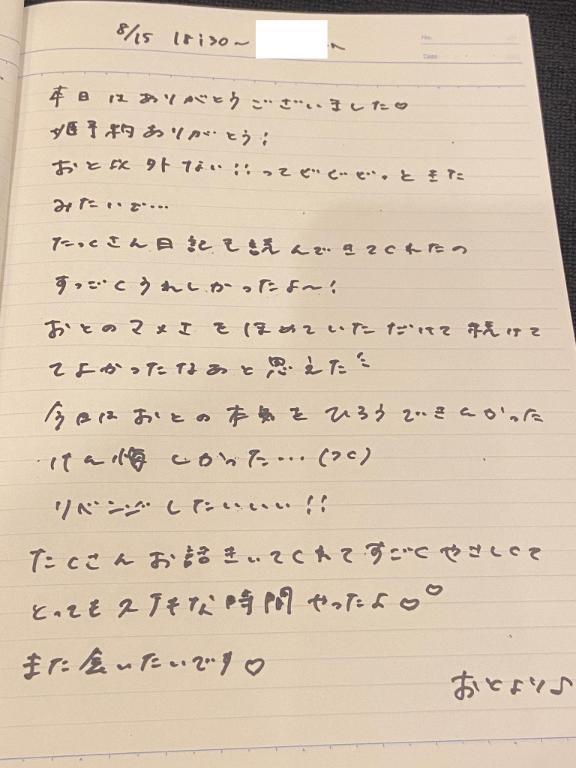 8/15 18:30〜 へ
No.
Date
本日はありがとうございました♡
姫予約ありがとう!
おと以外ない!!ってビビビ。ときた
みたいで…
たっくさん日記も読んできてくれたの
すっごくうれしかったよ〜!
おとのマメさもほめていただけて続けて
てよかったなぁと思えた
今日はおとの本気をひろうできんかった
けん悔しかった…(つC)
リベンジしたいいい!!
たくさんお話きいてくれてすごくやさしくて
とってもステキな時間やったよ♡♡
また会いたいです♡
おとより♪